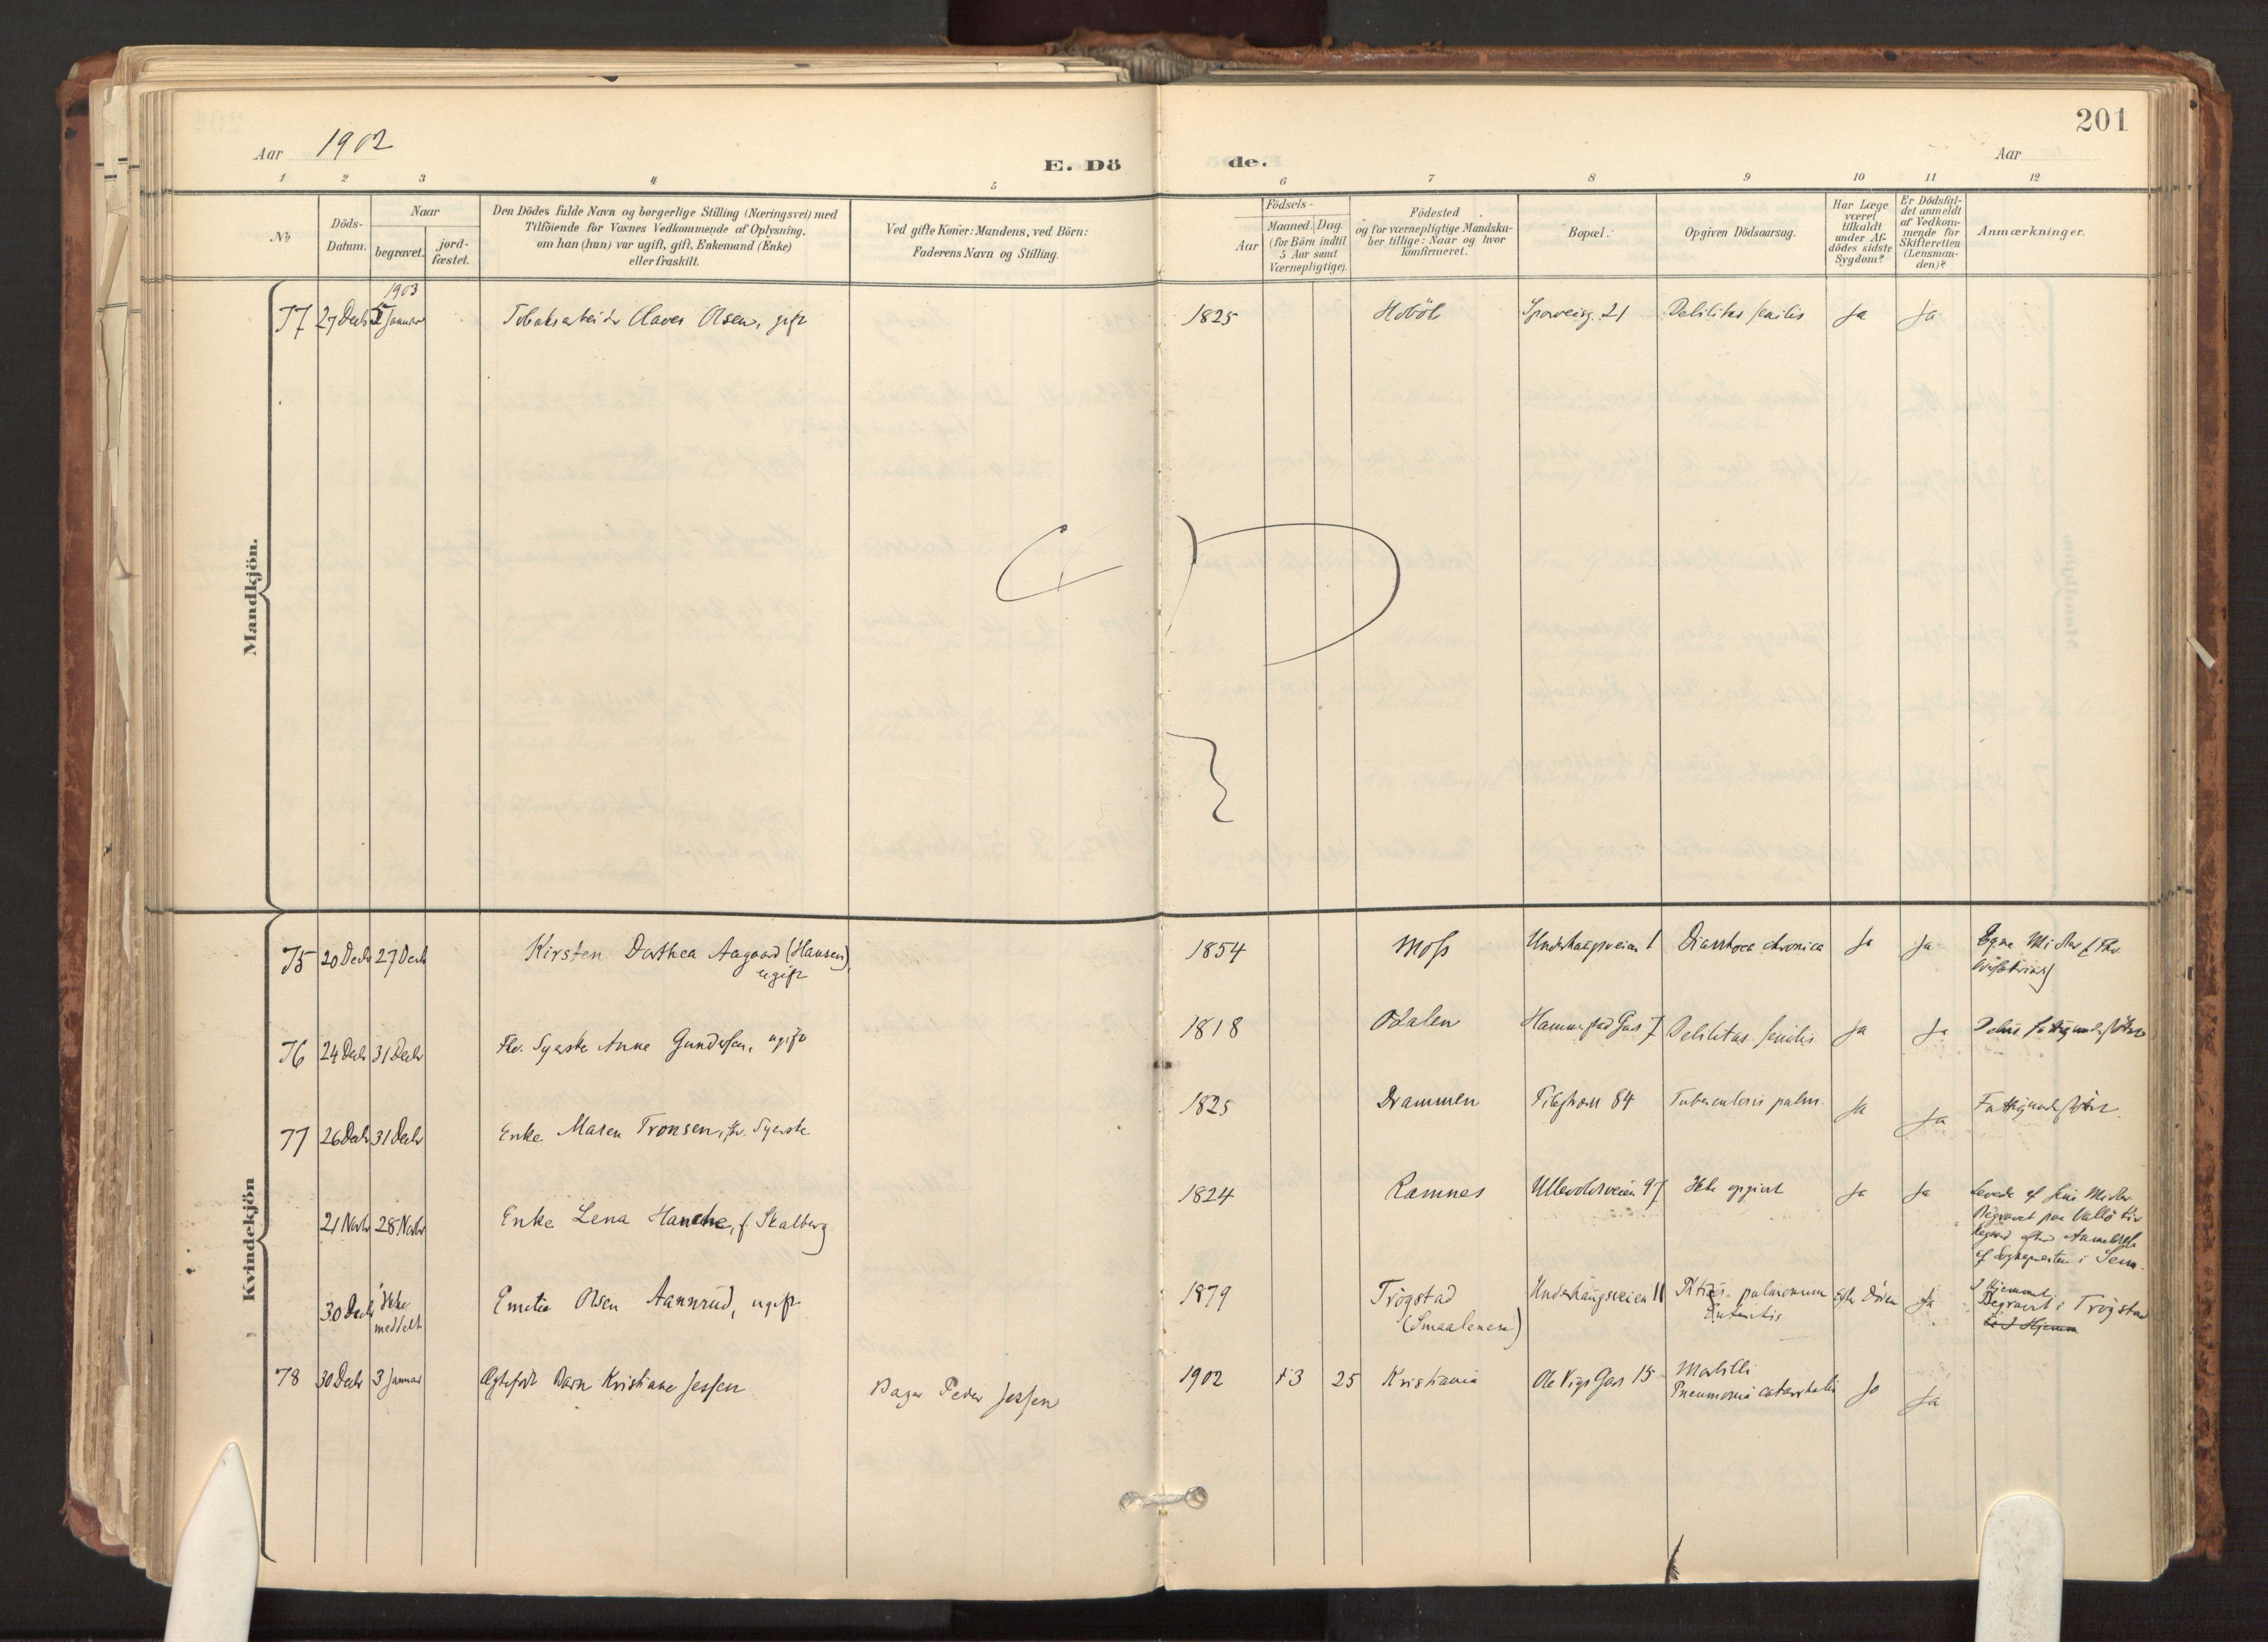 201
Aar 1902
E. Dö
de.
Aar
1 2 3 4 5 6 7 8 9 10 11 12
No
Döds-
Datum.
Naar
begravet.
jord-
fæstet.
Den Dödes fulde Navn og borgerlige Stilling (Næringsvei) med
Tilföiende for Voxnes Vedkommende af Oplysning,
om han (hun) var ugift, gift, Enkemand (Enke)
eller fraskilt.
Ved gifte Koner: Mandens, ved Börn:
Faderens Navn og Stilling.
Födsels-
Aar
Maaned. Dag.
(for Börn indtil
5 Aar samt
Værnepligtige).
Födested
og for værnepligtige Mandska-
ber tillige: Naar og hvor
konfirmeret.
Bopæl.
Opgiven Dödsaarsag.
Har Læge
været
tilkaldt
under Af-
dödes sidste
Sygdom?
Er Dödsfal-
det anmeldt
af Vedkom-
mende for
Skifteretten
(Lensman-
den)?
Anmærkninger.
Mandkjön.
1903
77 27 Decbr 5 Januar Tobaksarbeider Olaves Olsen, gift 1825 Haböl Sporveisg. 21 Debilitas senilis Ja Ja
Kvindekjön
75 20 Decbr 27 Decbr Kirsten Dorthea Aagaard (Hansen), 1854 Moss Underhaugsveien 1 Diarrhoea chronica Ja Ja Egne Midler
ugift
76 24 Decbr 31 Decbr Fhv. Syerske Anne Gundersen, ugift 1818 Odalen Hammerstad Gad 7 Debilitas senilis Ja Ja
77 26 Decbr 31 Decbr Enke Maren Tronsen, fhv. Syerske 1825 Drammen Pilestræd 84 Tuberculosis pulm. Ja Ja Fattigunderstöttet
21 Novbr 28 Novbr Enke Lena Hanche, f. Skalberg 1824 Ramnes Ullevoldsveien 97 Ikke opgivet Ja Ja Levede af sine Midler
Begravet paa Vallö Kir
kegaard efter Anmeldelse
af Sognepresten i Sem.
30 Decbr Ikke
meddelt Emilie Olsen Aannrud, ugift 1879 Trögstad
(Smaalenene) Underhaugsveien 11 Phtisis pulmonum
Enteritis Efter Döden Ja I Hjemmet
Begravet i Trögstad
78 30 Decbr 3 Januar Ægtefödt Barn Kristiane Jessen Bager Peder Jessen 1902 3 25 Kristiania Ole Vigs Gad 15 Morbilli
Pneumonia catarrhalis Ja Ja